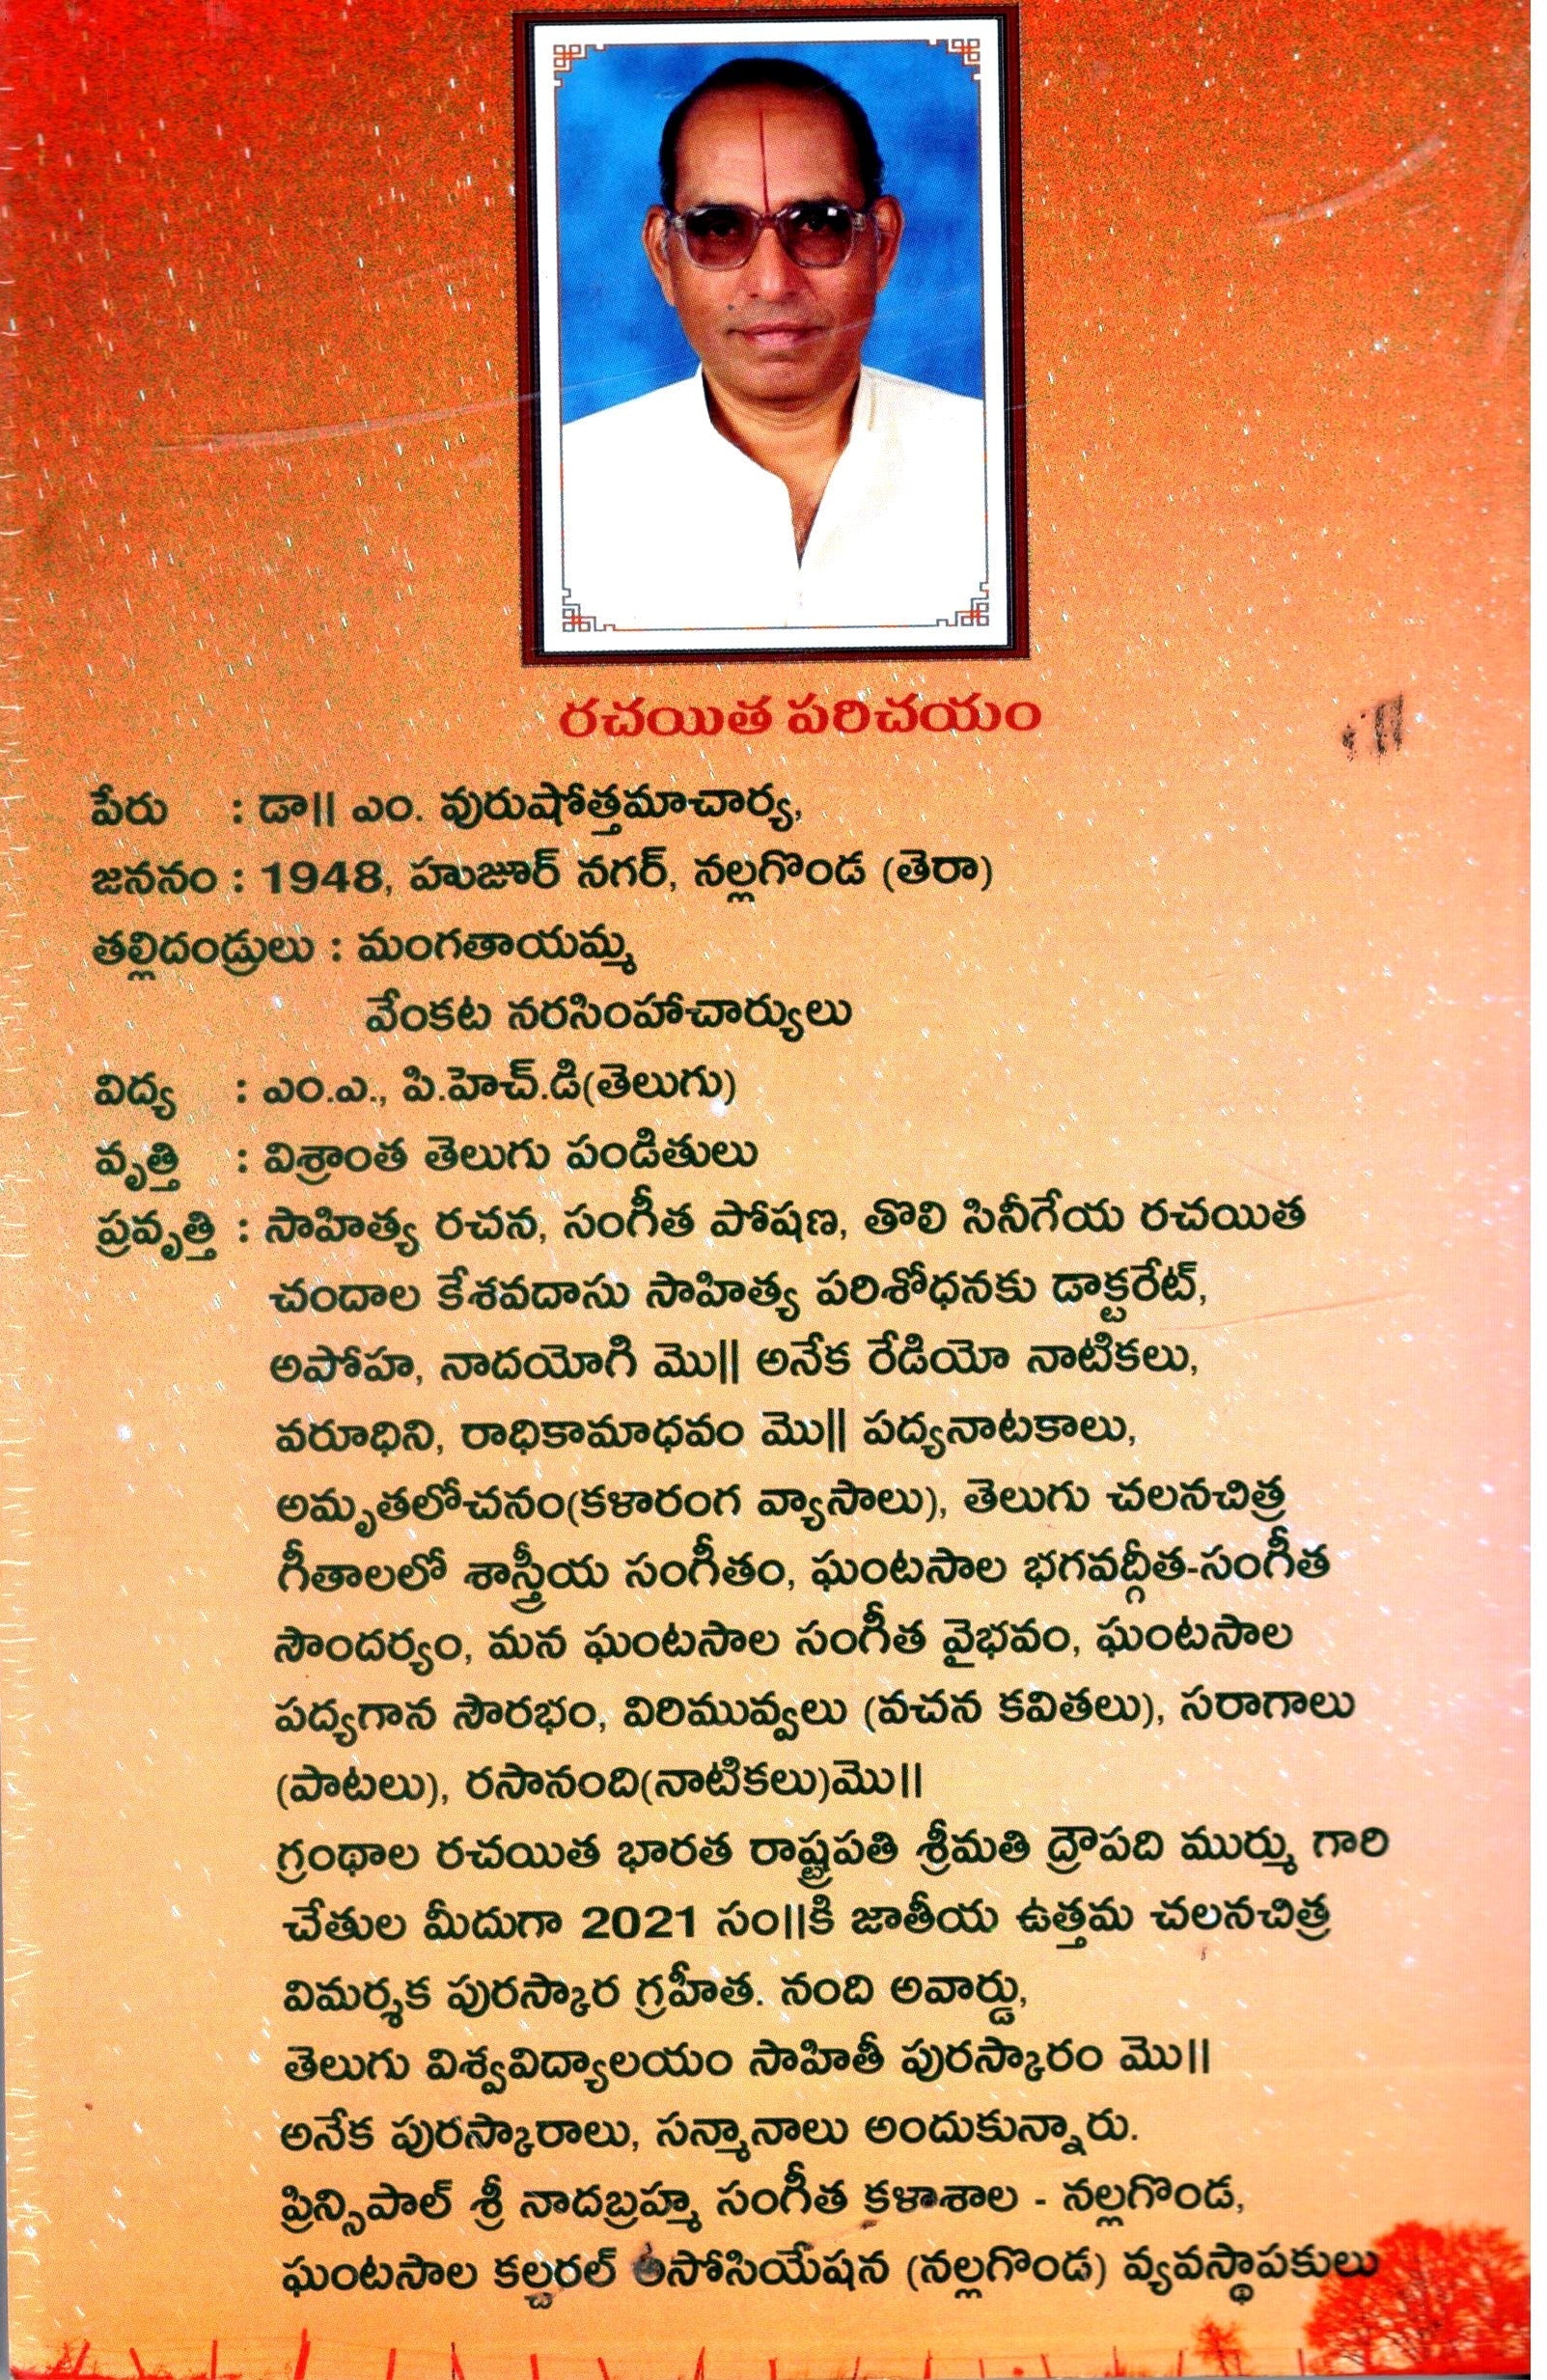 రచయిత పరిచయం
పేరు : డా॥ ఎం. వురుషోత్తమాచార్య,
జననం : 1948, హుజూర్ నగర్, నల్లగొండ (తెరా)
తల్లిదండ్రులు : మంగతాయమ్మ
వేంకట నరసింహాచార్యులు
విద్య : ఎం.ఎ., పి.హెచ్.డి(తెలుగు)
వృత్తి : విశ్రాంత తెలుగు పండితులు
ప్రవృత్తి : సాహిత్య రచన, సంగీత పోషణ, తొలి సినీగేయ రచయిత
చందాల కేశవదాసు సాహిత్య పరిశోధనకు డాక్టరేట్,
అపోహ, నాదయోగి మొ॥ అనేక రేడియో నాటికలు,
వరూధిని, రాధికామాధవం మొ॥ పద్యనాటకాలు,
అమృతలోచనం(కళారంగ వ్యాసాలు), తెలుగు చలనచిత్ర
గీతాలలో శాస్త్రీయ సంగీతం, ఘంటసాల భగవద్గీత-సంగీత
సౌందర్యం, మన ఘంటసాల సంగీత వైభవం, ఘంటసాల
పద్యగాన సౌరభం, విరిమువ్వలు (వచన కవితలు), సరాగాలు
(పాటలు), రసానంది(నాటికలు)మొ॥
గ్రంథాల రచయిత భారత రాష్ట్రపతి శ్రీమతి ద్రౌపది ముర్ము గారి
చేతుల మీదుగా 2021 సం॥కి జాతీయ ఉత్తమ చలనచిత్ర
విమర్శక పురస్కార గ్రహీత. నంది అవార్డు,
తెలుగు విశ్వవిద్యాలయం సాహితీ పురస్కారం మొ॥
అనేక పురస్కారాలు, సన్మానాలు అందుకున్నారు.
ప్రిన్సిపాల్ శ్రీ నాదబ్రహ్మ సంగీత కళాశాల - నల్లగొండ,
ఘంటసాల కల్చరల్ అసోసియేషన (నల్లగొండ) వ్యవస్థాపకులు